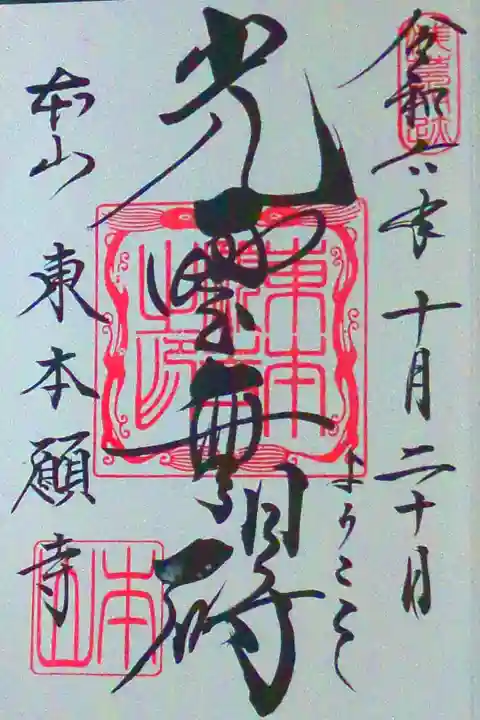 令和六年 十月二十日
ようこそ
光雲無碍
東本願寺之印
本山 東本願寺
本山